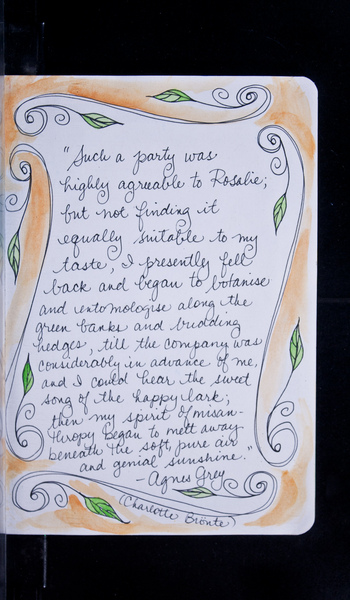 "Such a party was
highly agreable to Rosalie;
but not finding it
equally suitable to my
taste, I presently fell
back and began to botanise
and entomologise along the
green banks and budding
hedges, till the company was
considerably in advance of me,
and I could hear the sweet
song of the happy lark;
then my spirit of misan-
thropy began to melt away
beneath the soft, pure air
and genial sunshine."
- Agnes Grey
(Charlotte Brontë)